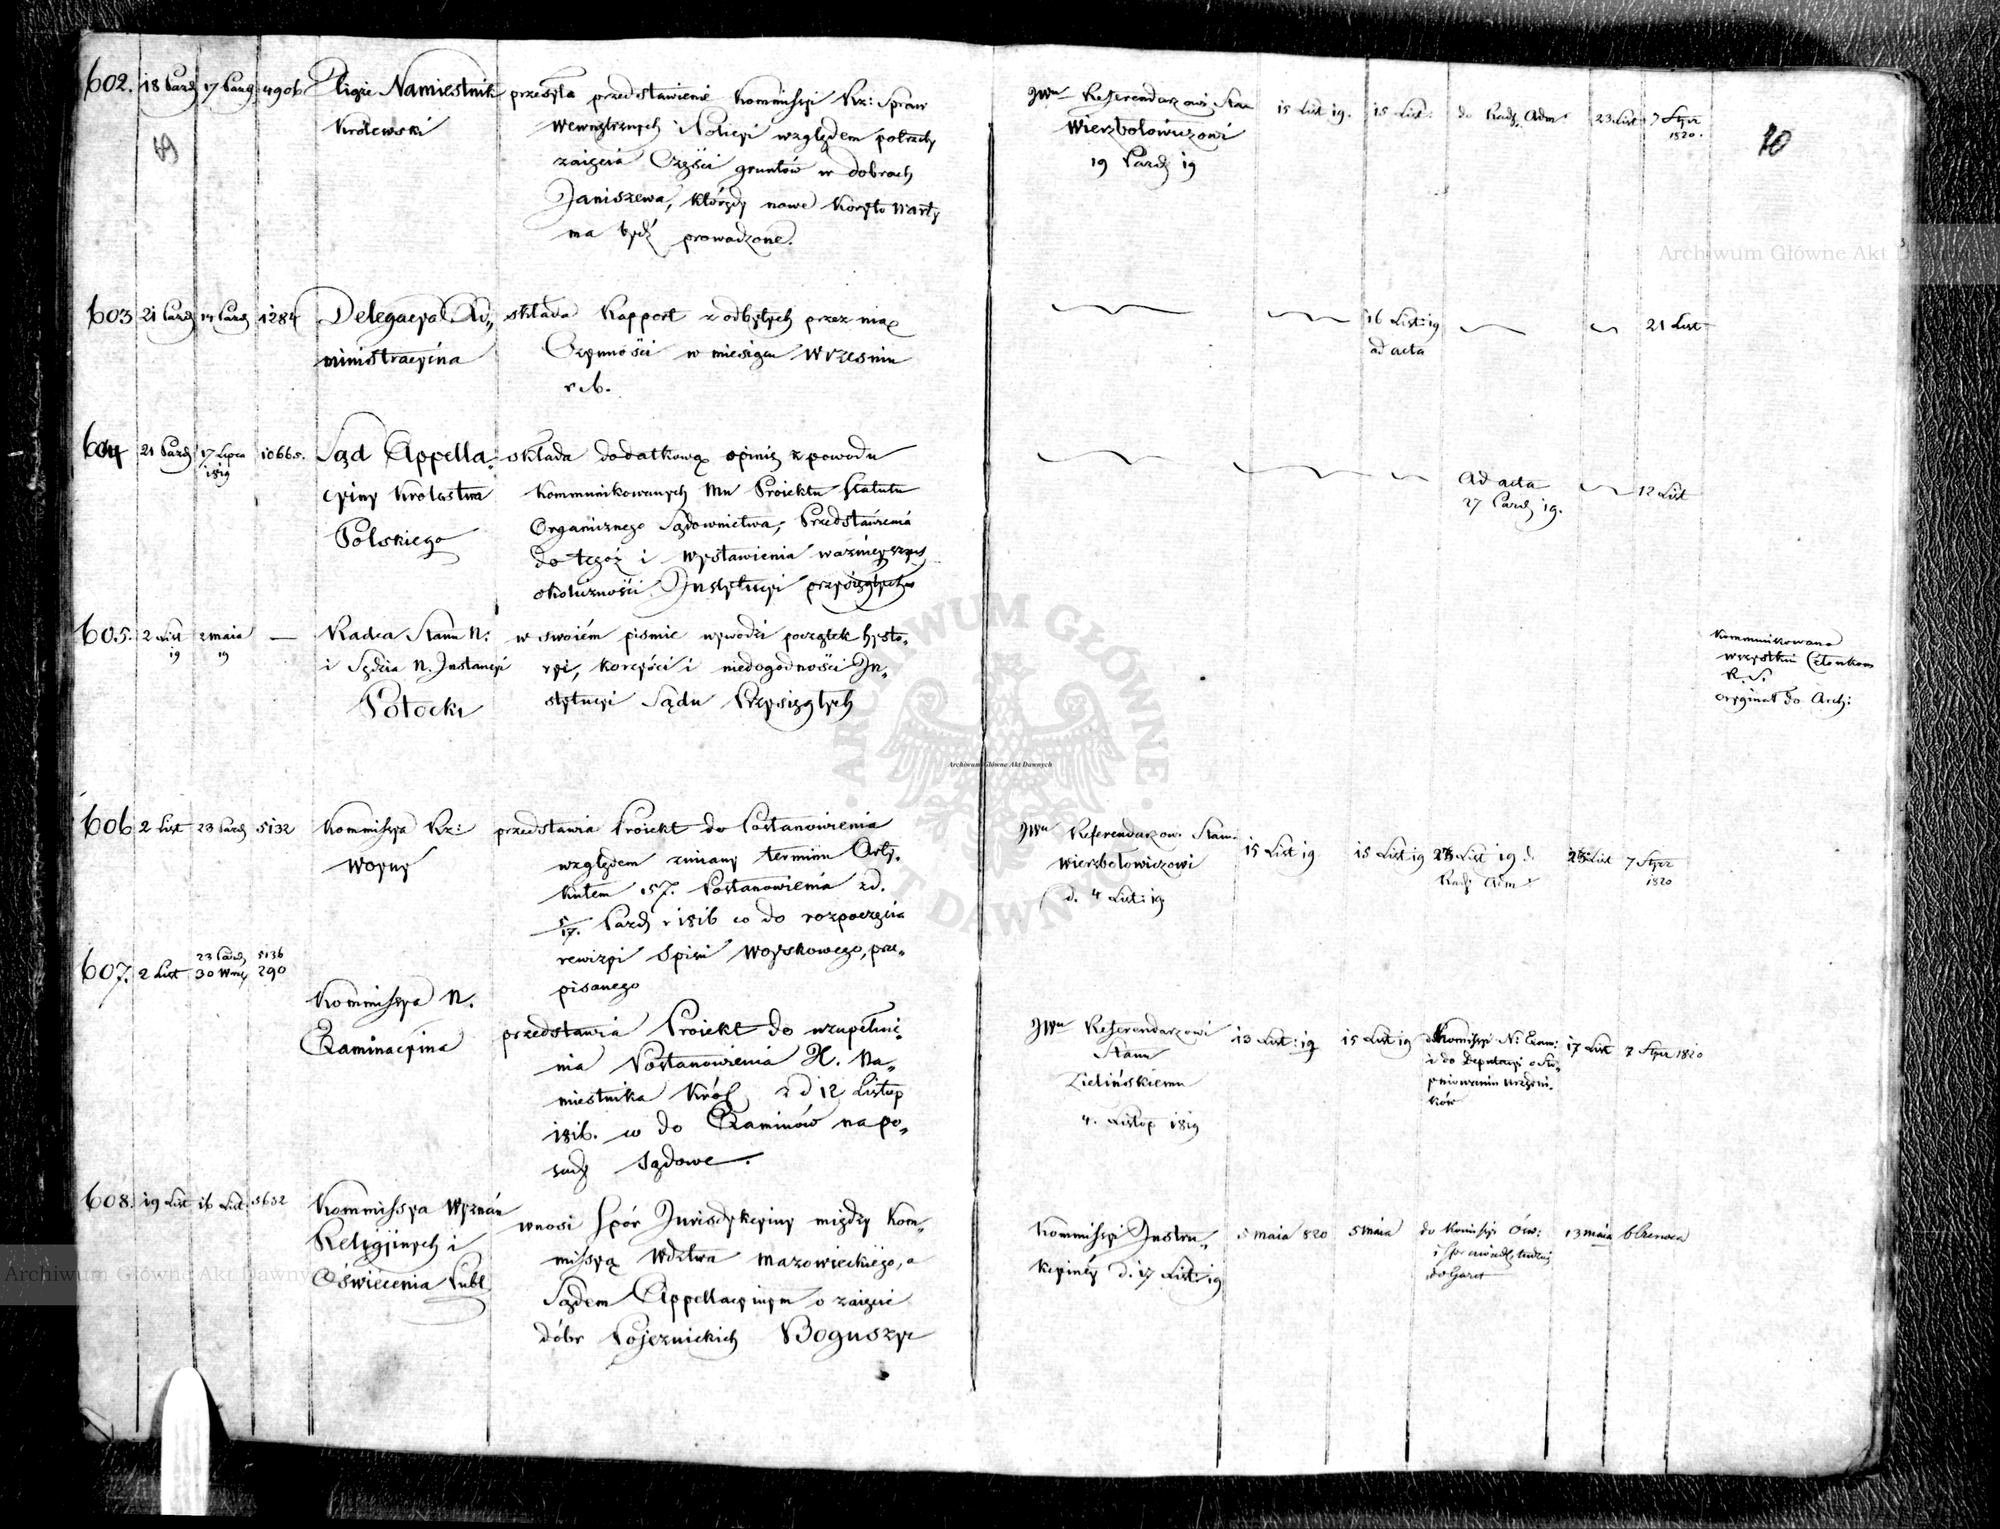 602. 18 Paźd 17 Paźd 4906 Xiąże Namiestnik przesyła przedstawienie Kommissyi Rz: Spraw
19
Królewski
Wewnętrznych i Policyi względem potrzeby
zaięcia Części gruntów w dobrach
Janiszewa, którędy nowe Koryto Warty
ma bydź prowadzone.
JWu Referendarzowi Stanu
Wierzbołowiczowi
19 Paźd 19
15 List 19. 15 List: do Rady Adm: 23 List 7 Stycz
1820.
10
603 21 Paźd 14 Paźd 1284 Delegacya Ad„
ministracyina
składa Rapport z odbytych przez nią
Czynności w miesiącu Wrześniu
r. b.
16 List: 19
ad acta
21 List
604 21 Paźd 17 Lipca
1819
10665.
Sąd Appella„
cyiny Królestwa
Polskiego
składa dodatkową opinię z powodu
Kommunikowanych Mu Proiektu Statutu
Organicznego Sądownictwa, Przedstawienia
do tegoż i Wystawienia ważnieyszych
okoliczności Instytucyi przysięgłych
Ad acta
27 Paźd 19.
12 List
605. 2 List
19
2 maia
19
—
Radca Stanu N.
i Sędzia N. Instancyi
Potocki
w swoiém pismie wywodzi początek hysto„
ryi, korzyści i niedogodności In„
stytucyi Sądu Przysięgłych
Kommunikowano
wszystkim Członkom
R. S.
oryginał do Arch:
606 2 List 23 Paźd 5132 Kommissya Rz:
Woyny
przedstawia Proiekt do Postanowienia
względem zmiany terminu Arty„
kułem 157. Postanowienia z d.
5/17. Paźd r 1816 co do rozpoczęcia
rewizyi Spisu Woyskowego, prze„
pisanego
JWu Referendarzow. Stanu
Wierzbołowiczowi
d. 4 List: 19
15 List 19 15 List 19 23 List 19 d.
Rady Adm:
23 List 7 Stycz
1820
607. 2 List 23 Paźd
30 Wrze
5136
290
Kommissya N.
Examinacyina
przedstawia Proiekt do uzupełnie„
nia Postanowienia X. Na„
miestnika Król z d 12 Listop
1816. co do Examinów na po„
sady Sądowe.
JWu Referendarzowi
Stanu
Zielińskiemu
4. Listop 1819
13 List: 19 15 List 19 do Komissyi N: Exam:
i do Deputacyi o Stę„
pniowaniu urzędni„
ków
17 List 7 Stycz 1820
608. 19 List 16 List. 5652 Kommissya Wyznań
Religijnych i
Oświecenia Publ
wnosi Spór Jurisdykcyiny między Kom„
missyą Wdztwa Mazowieckiégo, a
Sądem Appellacyinym o zaięcie
dóbr Pojezuickich Boguszyc
Kommissyi Instru„
kcyinéy d. 17 List: 19
5 maia 820 5 maia do Komissyi Ośw:
13 maia 6 Czerwca